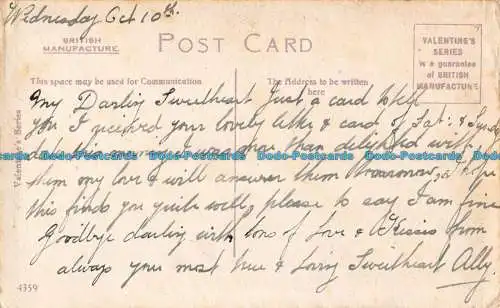 Wednesday Oct 10th.
BRITISH
MANUFACTURE
POST CARD
VALENTINE'S
SERIES
is a guarantee
of BRITISH
MANUFACTURE
This space may be used for Communication
The Address to be written
here
Valentine's Series
My Darling Sweetheart Just a card to tell
you I recived your lovely letter & card of Sat: &
this I was more than delighted with
them my love & I will answer them tomorrow, I hope
this finds you quite well, please to say I am fine
Goodbye darling with tons of Love & Kisses from
always your most true & loving Sweetheart Ally.
4359
Docs-Postcards